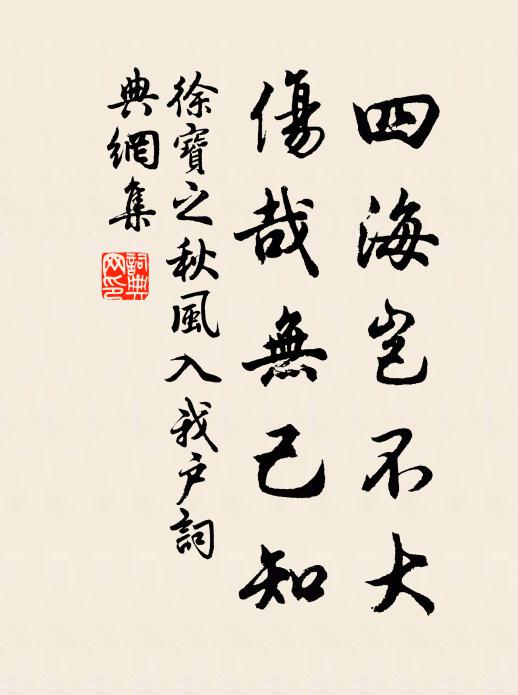 四海岂不大
傷哉無己知
徐寶之秋風入我戶詞
典網集
詞典网印